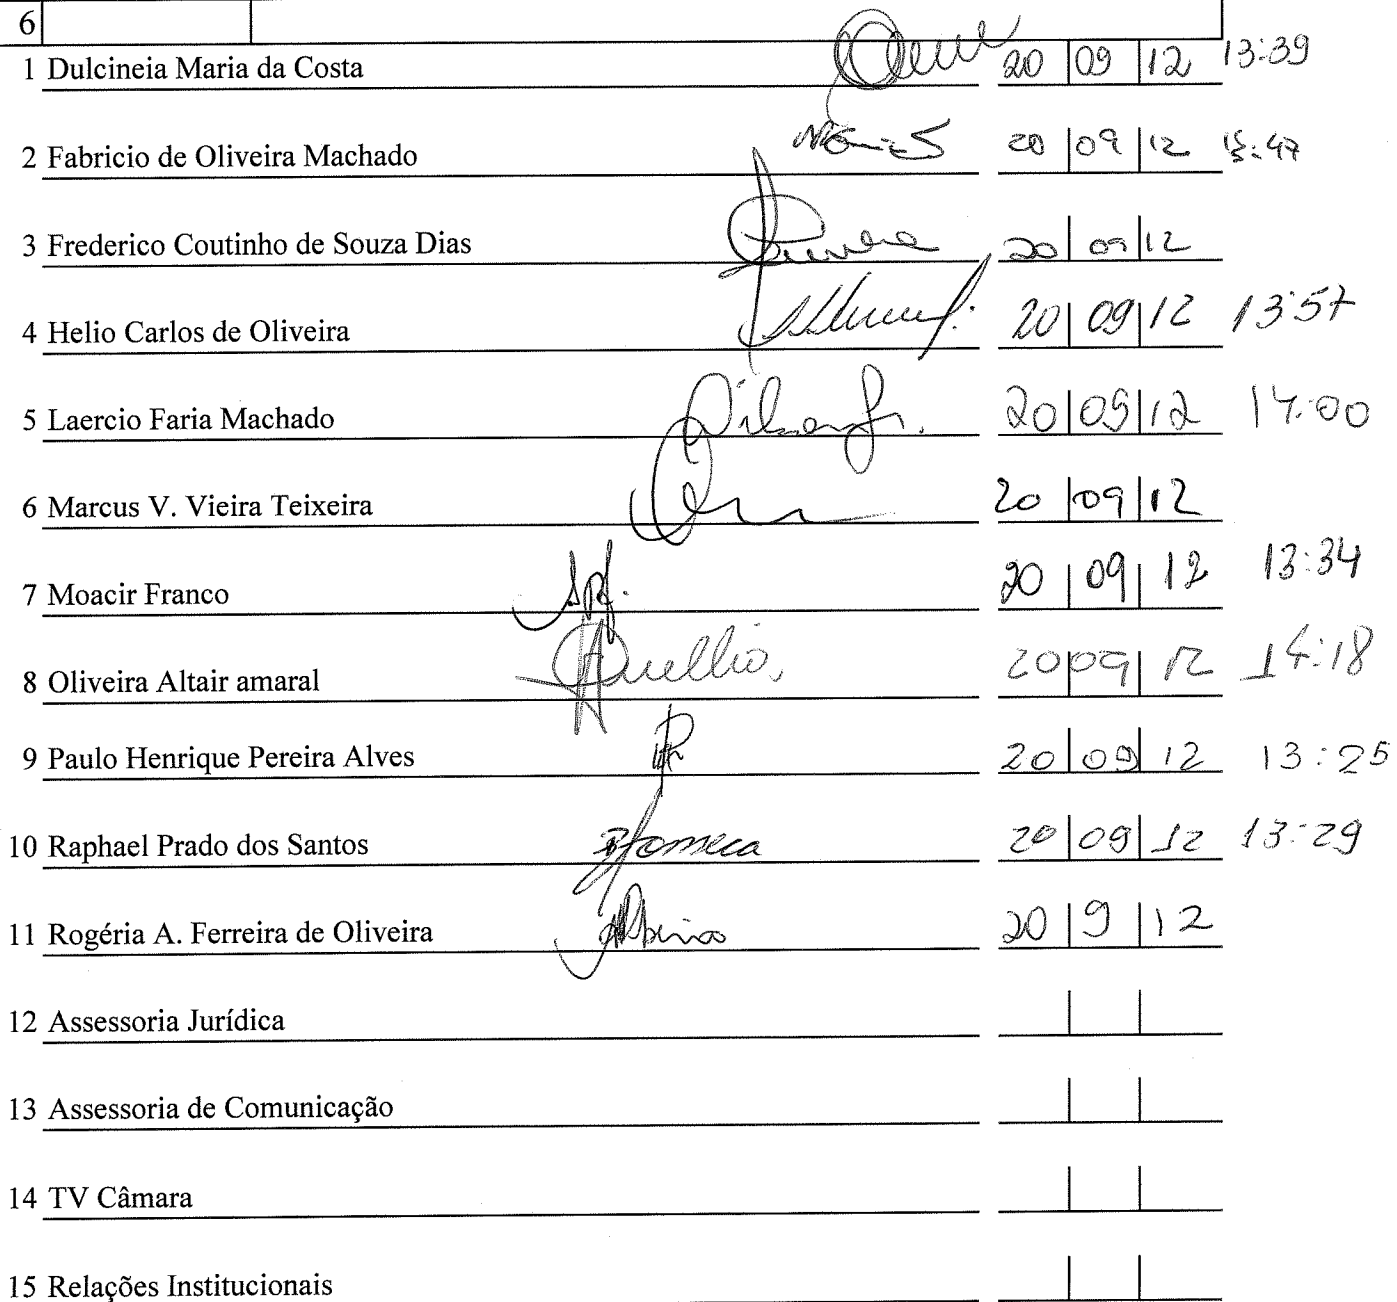 6
1 Dulcineia Maria da Costa 20 09 12 13:39
2 Fabricio de Oliveira Machado 20 09 12
3 Frederico Coutinho de Souza Dias 20 09 12
4 Helio Carlos de Oliveira 20 09 12 13:57
5 Laercio Faria Machado 20 09 12 14:00
6 Marcus V. Vieira Teixeira 20 09 12
7 Moacir Franco 20 09 12 13:34
8 Oliveira Altair amaral 20 09 12 14:18
9 Paulo Henrique Pereira Alves 20 09 12 13:25
10 Raphael Prado dos Santos Fonseca 20 09 12 13:29
11 Rogéria A. Ferreira de Oliveira 20 9 12
12 Assessoria Jurídica
13 Assessoria de Comunicação
14 TV Câmara
15 Relações Institucionais